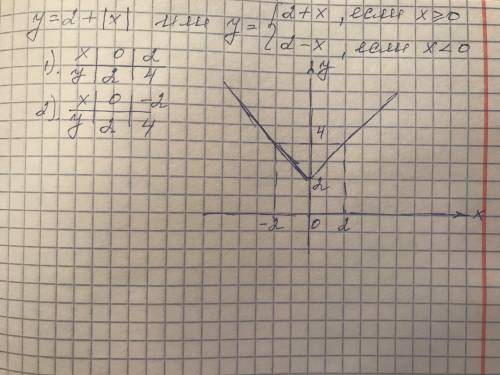 y=2+|x| или y={2+x, если x≥0
{2-x, если x<0
1). x | 0 | 2
y | 2 | 4
2). x | 0 | -2
y | 2 | 4
y
4
2
-2 0 2 x